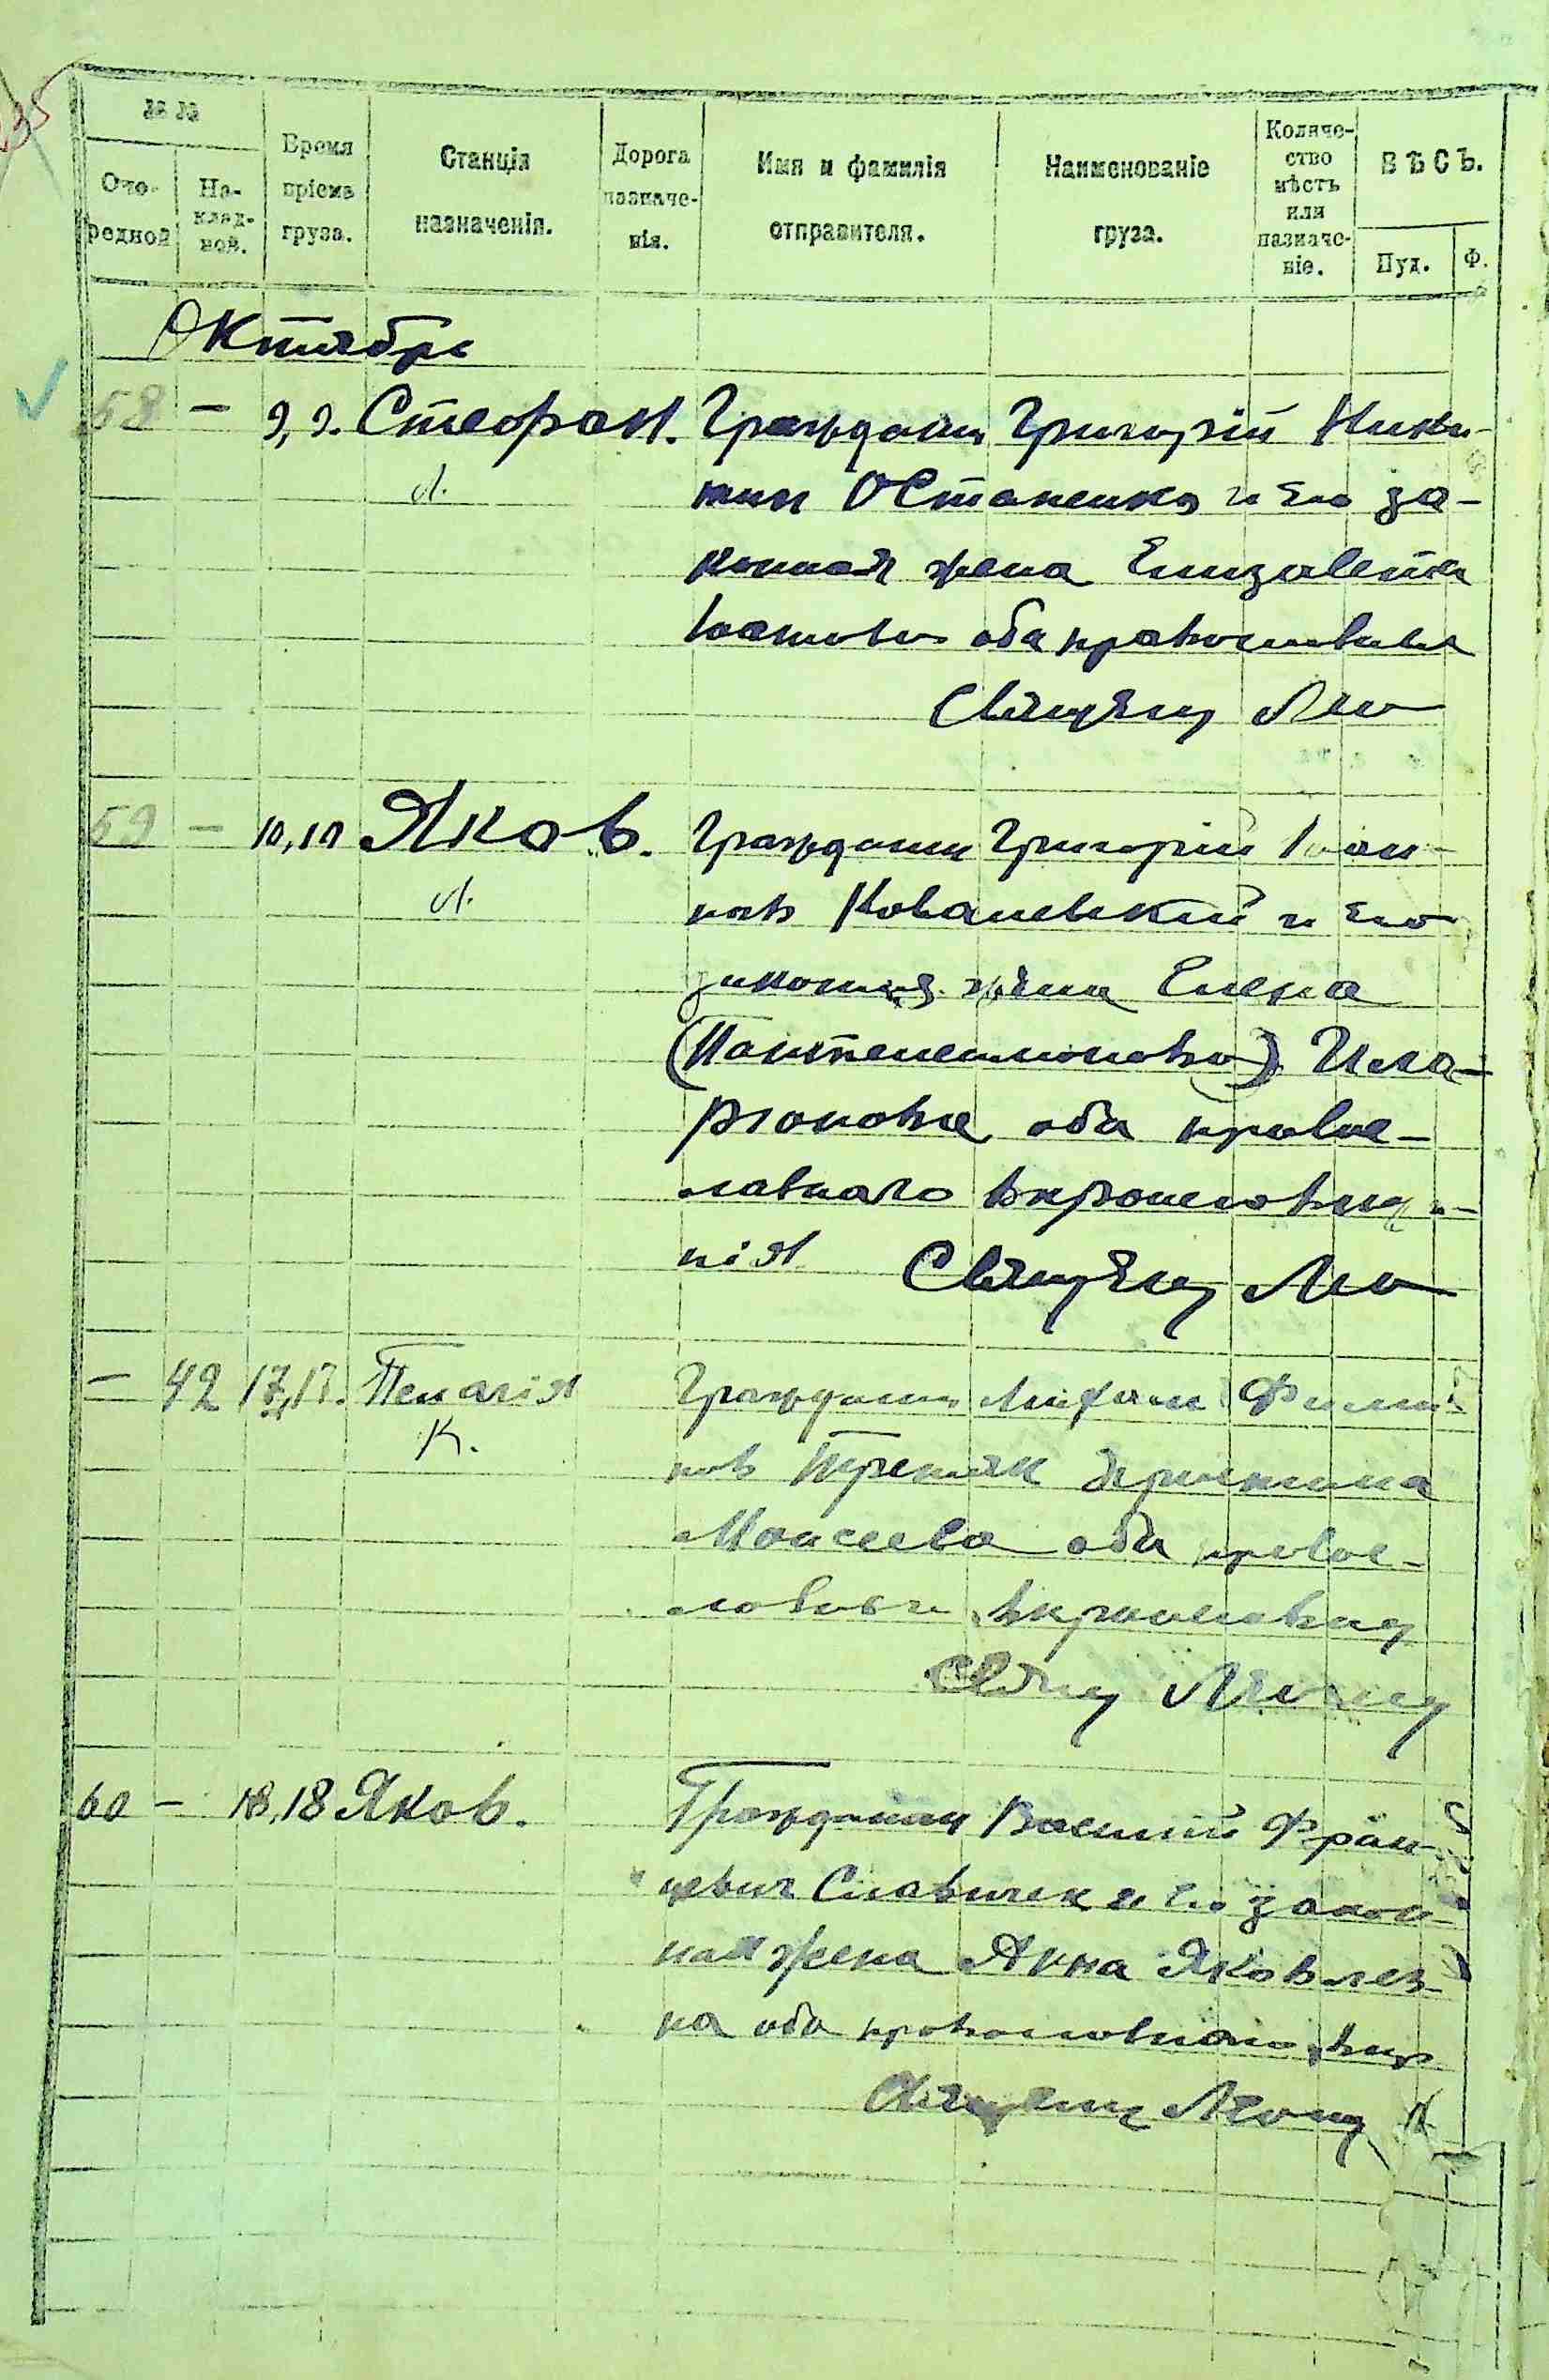 35
№ №
Оче-
редной
На-
клад-
ной.
Время
пріема
груза.
Станція
назначенія.
Дорога
назначе-
нія.
Имя и фамилія
отправителя.
Наименованіе
груза.
Количе-
ство
мѣстъ
или
назначе-
ніе.
ВѢСЪ.
Пуд.
Ф.
Октябрь
58 — 9, 9. Стефан. Гражданин Григорій Ники-
л. тин Остапенко и его за-
конная жена Елизавета
оба православные
Священ Лео
59 — 10, 10 Яков. Гражданин Григорій Іоан-
л. новъ Ковалевский и его
законная жена Елена
(Пантелеимонова) Ила-
рионова оба право-
славнаго вѣроисповѣда-
нія Священ Лео
— 42 17, 17. Пелагія Гражданин Филип-
К. повъ Третяк
Моисеева оба право-
славнаго вѣроисповѣд
Свящ Леонид
60 — 18, 18 Яков. Гражданин Василий Фран-
цевич Славичек и его закон-
ная жена Анна Яковлев-
на оба православнаго вѣр
Священ Леонид